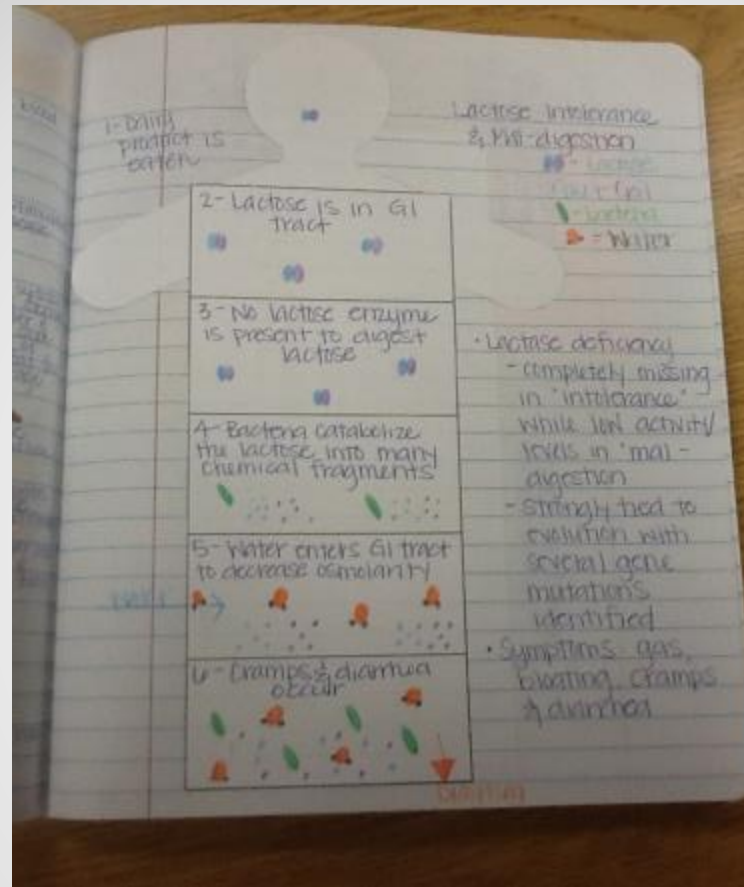 1-Dairy
product is
eaten
Lactose Intolerance
& Mal-digestion
- Lactose
- Water
2-Lactose is in GI
tract
3-No lactose enzyme
is present to digest
lactose
4-Bacteria catabolize
the lactose into many
chemical fragments
5-Water enters GI tract
to decrease osmolarity
6-Cramps & diarrhea
occur
• Lactase deficiency
- completely missing
in 'intolerance'
while low activity
levels in 'mal-
digestion
- Strongly tied to
evolution with
several gene
mutations
identified
• Symptoms: gas,
bloating, cramps
& diarrhea